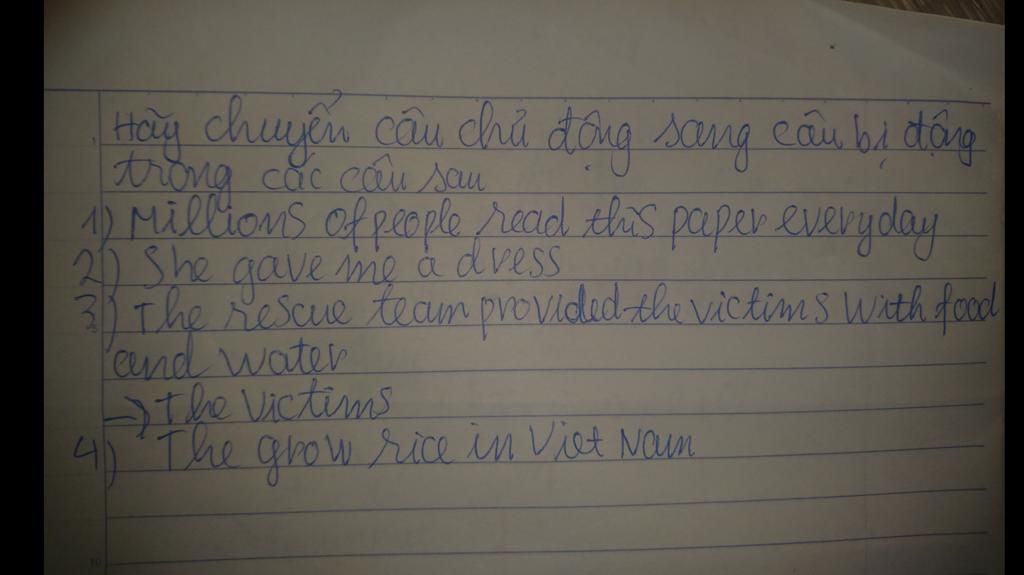 Hãy chuyển câu chủ động sang câu bị động
trong các câu sau
1) Millions of people read this paper everyday
2) She gave me a dress
3) The rescue team provided the victims with food
and water
→ The victims
4) The grow rice in Viet Nam